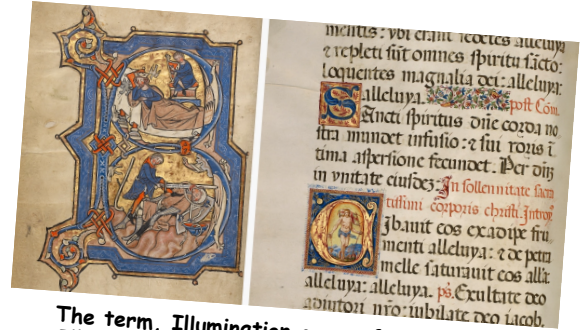 mentis: vbi erant
⁊ repleti sūt omnes spiritu sācto:
loquentes magnalia dei: alleluya:
alleluya. post Cōm.
Sancti spiritus dn̄e corda no
stra mundet infusio: ⁊ sui roris ī
tima aspersione fecundet. Per dn̄z
in vnitate eiusdez. In sollennitate sacra
tissimi corporis christi. Introy̑
Cibauit eos ex adipe fru
menti alleluya: ⁊ de petra
melle saturauit eos alla:
alleluya: alleluya. ps. Exultate deo
adiutori nr̄o: iubilate deo iacob.
The term, Illumination